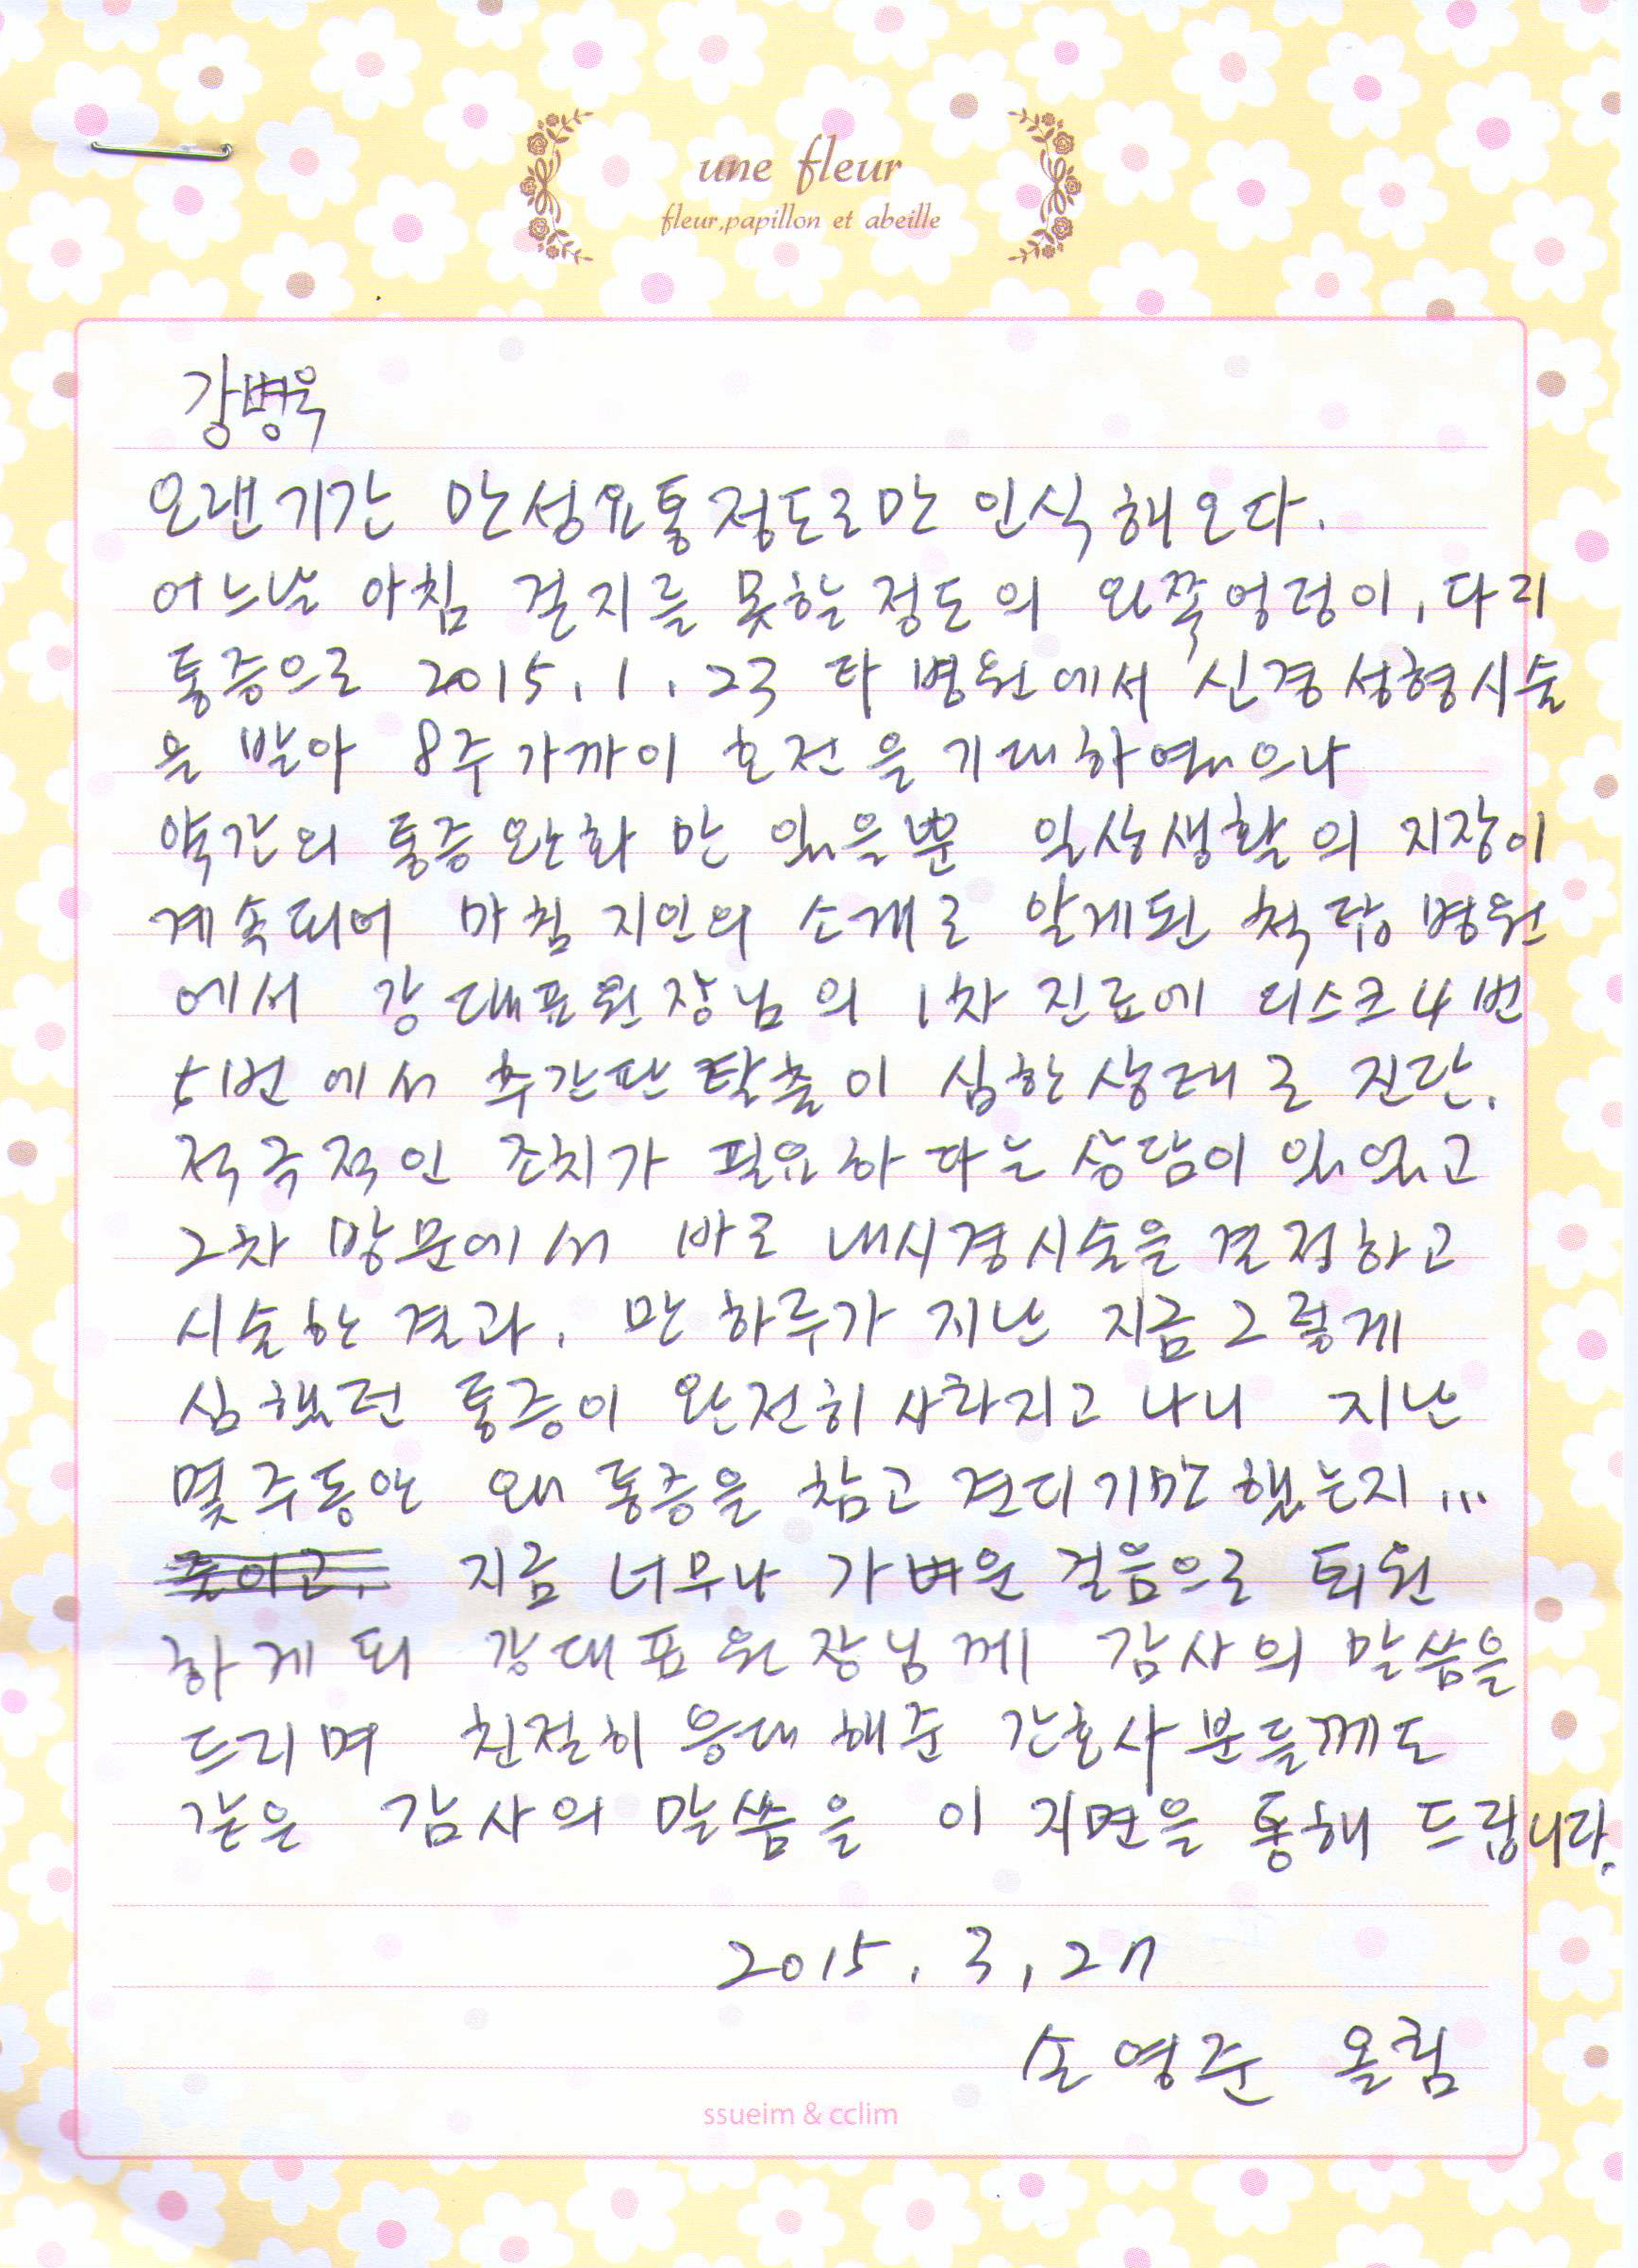 une fleur
fleur,papillon et abeille
강병욱
오랜기간 만성요통정도로만 인식해오다.
어느날 아침 걷지를 못할정도의 왼쪽엉덩이, 다리
통증으로 2015. 1. 23 타 병원에서 신경성형시술
을 받아 8주가까이 호전을 기대하였으나
약간의 통증완화 만 있을뿐 일상생활의 지장이
계속되어 마침 지인의 소개로 알게된 척탑병원
에서 강대표원장님의 1차 진료에 디스크4번
5번에서 추간판탈출이 심한상태로 진단.
적극적인 조치가 필요하다는 상담이 있었고
2차 방문에서 바로 내시경시술을 결정하고
시술한 결과, 만 하루가 지난 지금 그렇게
심했던 통증이 완전히 사라지고 나니 지난
몇주동안 왜 통증을 참고 견디기만 했는지 ...
지금 너무나 가벼운 걸음으로 퇴원
하게 되 강대표원장님께 감사의 말씀을
드리며 친절히 응대해준 간호사분들께도
같은 감사의 말씀을 이 지면을 통해 드립니다.
2015. 3, 27
손영준 올림
ssueim & cclim